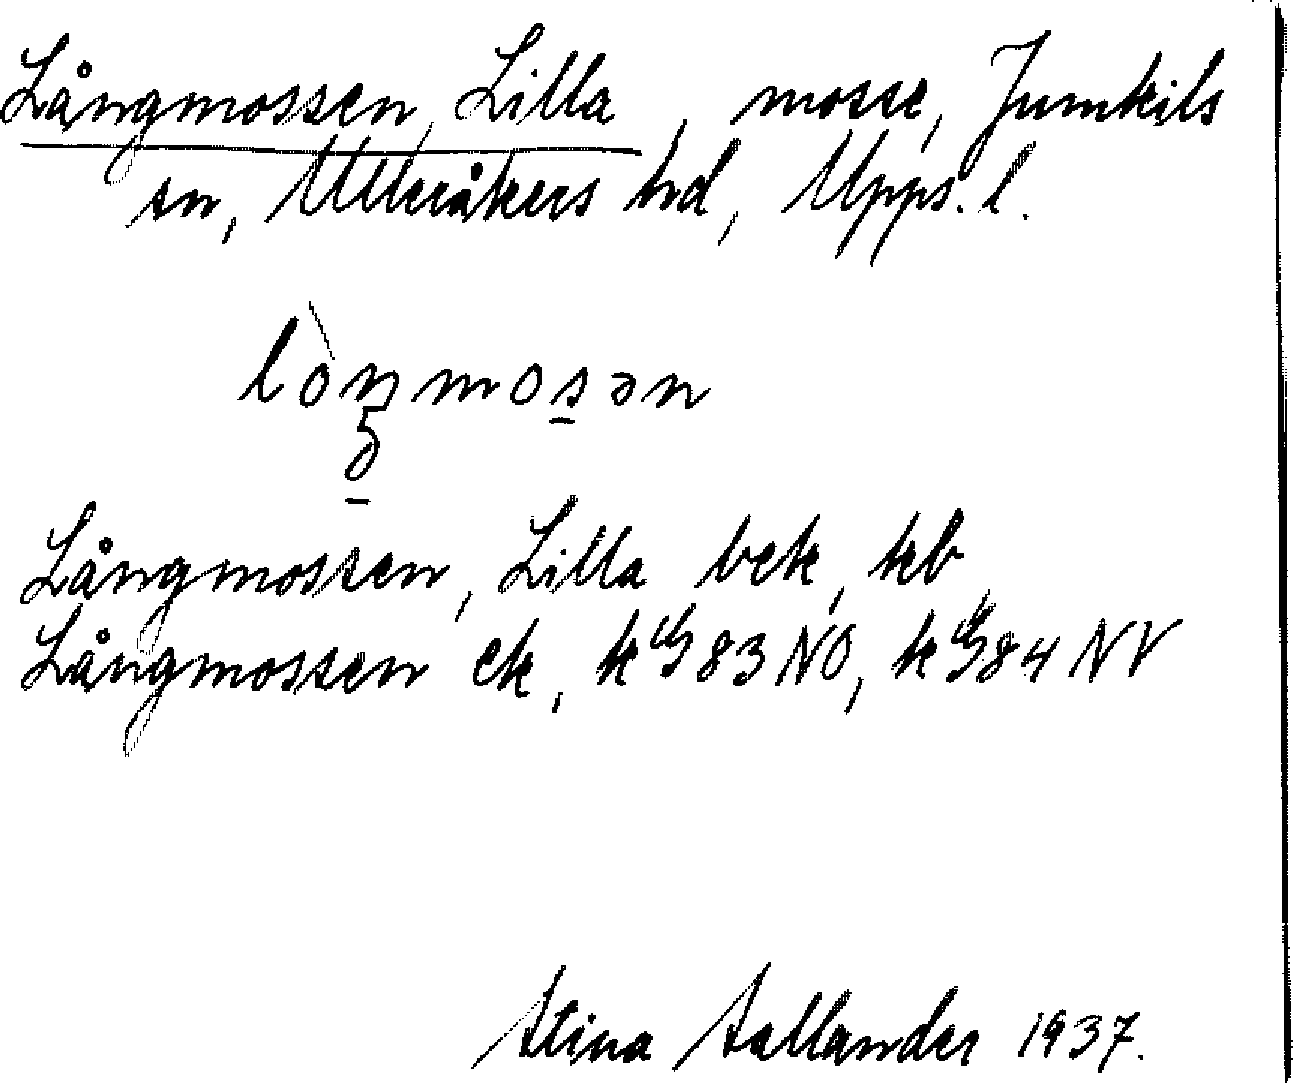 Långmossen, Lilla, mosse, Jumkils
sn, Ulleråkers hd, Upps. l.
lòŋmosən
Långmossen, Lilla bek, kb,
Långmossen ek, k 83 NO, k 84 NV
Stina Sallander 1937.